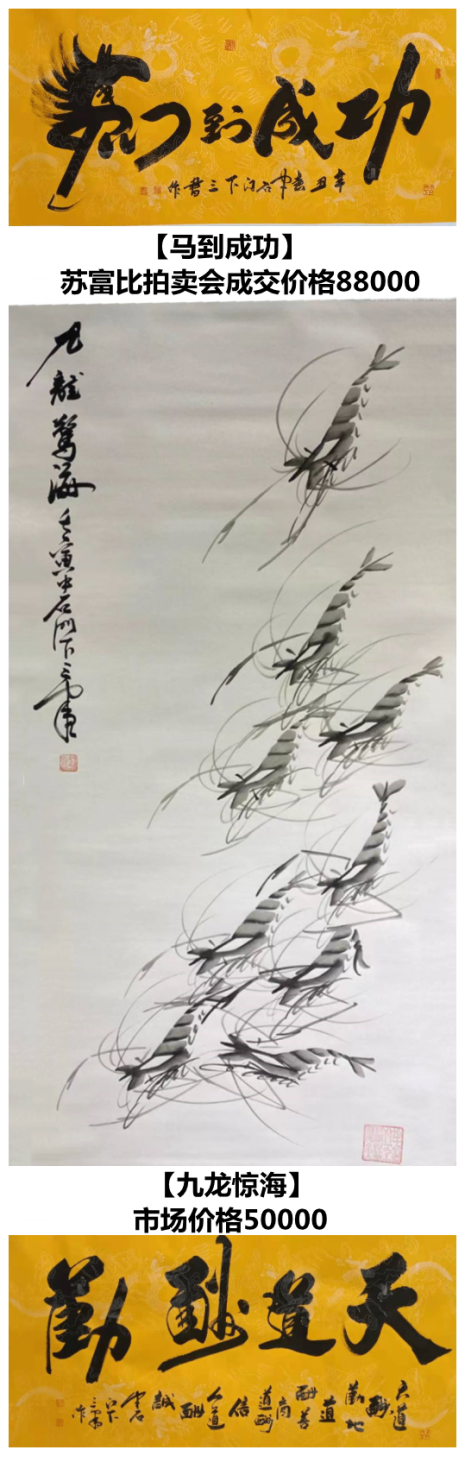 马到成功
辛丑春中石门下三
【马到成功】
苏富比拍卖会成交价格88000
九龍驚海
壬寅中石门下三
【九龙惊海】
市场价格50000
天道酬勤
天道酬勤地道酬善商道酬信人道酬誠中石门下三